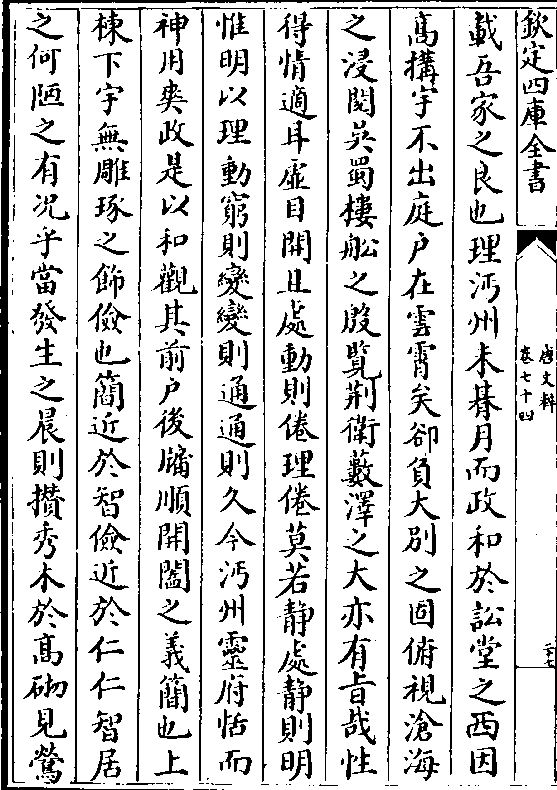 欽定四庫全書
唐文粹
卷七十四
載吾家之良也理沔州未朞月而政和於訟堂之西因
高搆宇不出庭户在雲霄矣卻負大别之固俯視滄海
之浸閱吳蜀樓舩之殷覽荆衛藪澤之大亦有旨哉性
得情適耳虚目開且處動則倦理倦莫若静處静則明
惟明以理動窮則變變則通通則久今沔州靈府恬而
神用爽政是以和觀其前户後牖順開闔之義簡也上
棟下宇無雕琢之飾儉也簡近於智儉近於仁仁智居
之何陋之有况乎當發生之晨則攢秀木於髙砌見鶯